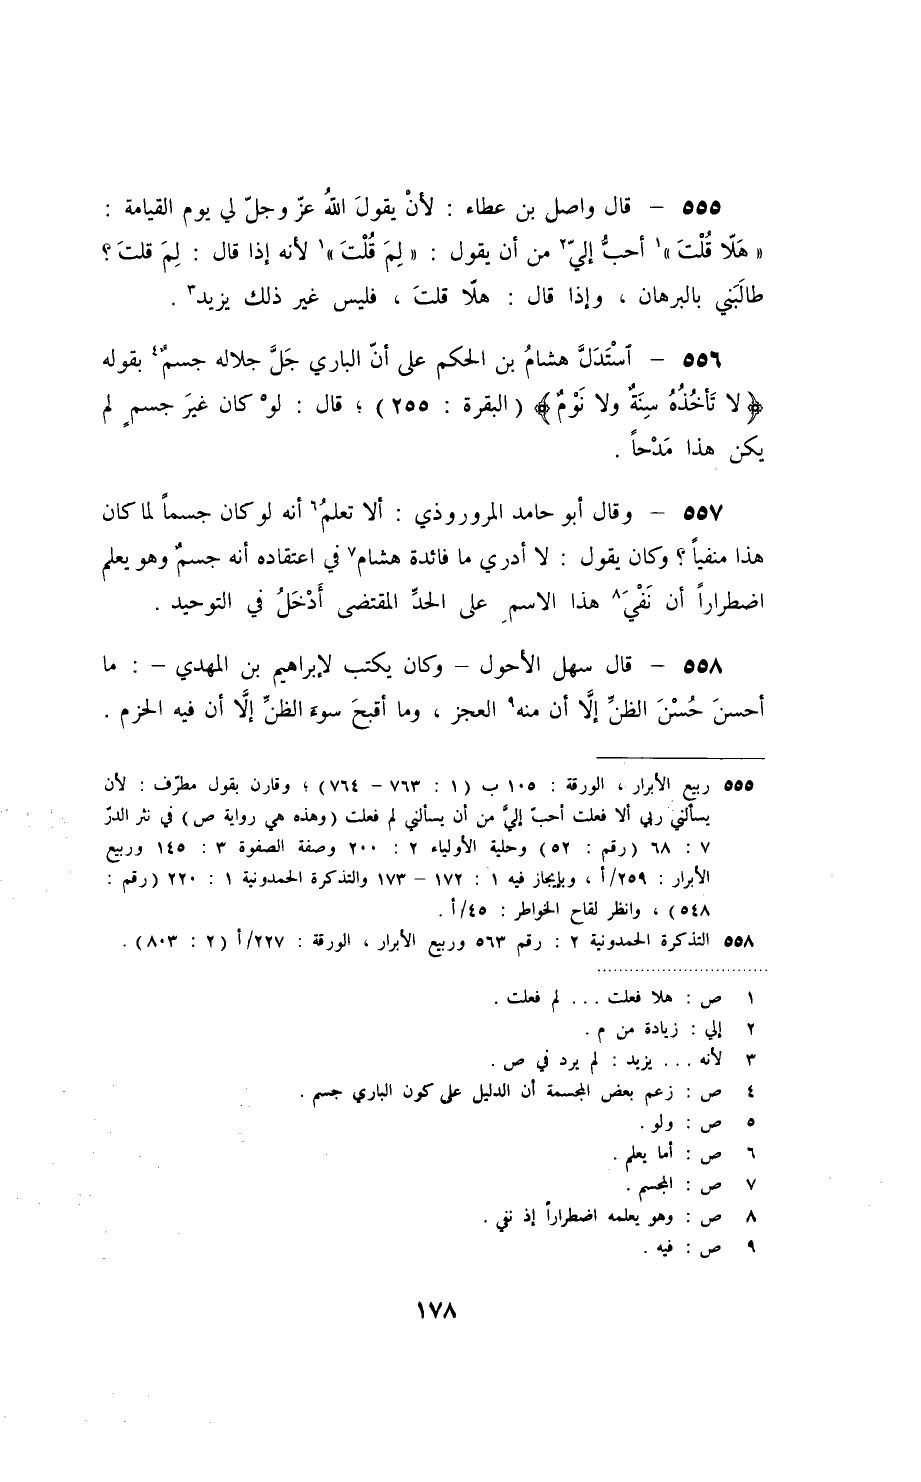 ٥٥٥ – قال واصل بن عطاء : لأنْ يقولَ اللهُ عزّ وجلّ لي يوم القيامة :
« هَلّا قُلْتَ »١ أحبُّ إليّ٢ من أن يقول : « لِمَ قُلْتَ »١ لأنه إذا قال : لِمَ قلتَ ؟
طالَبَني بالبرهان ، وإذا قال : هلّا قلتَ ، فليس غير ذلك يزيد٣ .
٥٥٦ – ٱستْدَلَّ هشامُ بن الحكم على أنّ الباري جَلَّ جلاله جسمٌ٤ بقوله
﴿لا تَأخُذُهُ سِنَةٌ ولا نَوْمٌ﴾ ( البقرة : ٢٥٥ ) ؛ قال : لو٥ كان غيرَ جسمٍ لم
يكن هذا مَدْحاً .
٥٥٧ – وقال أبو حامد المروروذي : ألا تعلمُ٦ أنه لو كان جسماً لما كان
هذا منفياً ؟ وكان يقول : لا أدري ما فائدة هشام٧ في اعتقاده أنه جسمٌ وهو يعلم
اضطراراً أن نَفْيَ٨ هذا الاسمِ على الحدِّ المقتضى أَدْخَلُ في التوحيد .
٥٥٨ – قال سهل الأحول – وكان يكتب لإبراهيم بن المهدي – : ما
أحسنَ حُسْنَ الظنِّ إلَّا أن منه٩ العجز ، وما أقبحَ سوءَ الظنِّ إلَّا أن فيه الحزم .
٥٥٥ ربيع الأبرار ، الورقة : ١٠٥ ب ( ١ : ٧٦٣ – ٧٦٤ ) ؛ وقارن بقول مطرّف : لأن
يسألني ربي ألا فعلت أحبّ إليَّ من أن يسألني لم فعلت ( وهذه هي رواية ص ) في نثر الدرّ
٧ : ٦٨ ( رقم : ٥٢ ) وحلية الأولياء ٢ : ٢٠٠ وصفة الصفوة ٣ : ١٤٥ وربيع
الأبرار : ٢٥٩/أ ، وبإيجاز فيه ١ : ١٧٢ – ١٧٣ والتذكرة الحمدونية ١ : ٢٢٠ ( رقم :
٥٤٨ ) ، وانظر لقاح الخواطر : ٤٥/أ .
٥٥٨ التذكرة الحمدونية ٢ : رقم ٥٦٣ وربيع الأبرار ، الورقة : ٢٢٧/أ ( ٢ : ٨٠٣ ) .
١ ص : هلا فعلت ... لم فعلت .
٢ إلي : زيادة من م .
٣ لأنه ... يزيد : لم يرد في ص .
٤ ص : زعم بعض المجسمة أن الدليل على كون الباري جسم .
٥ ص : ولو .
٦ ص : أما يعلم .
٧ ص : المجسم .
٨ ص : وهو يعلمه اضطراراً إذ نفي .
٩ ص : فيه .
١٧٨